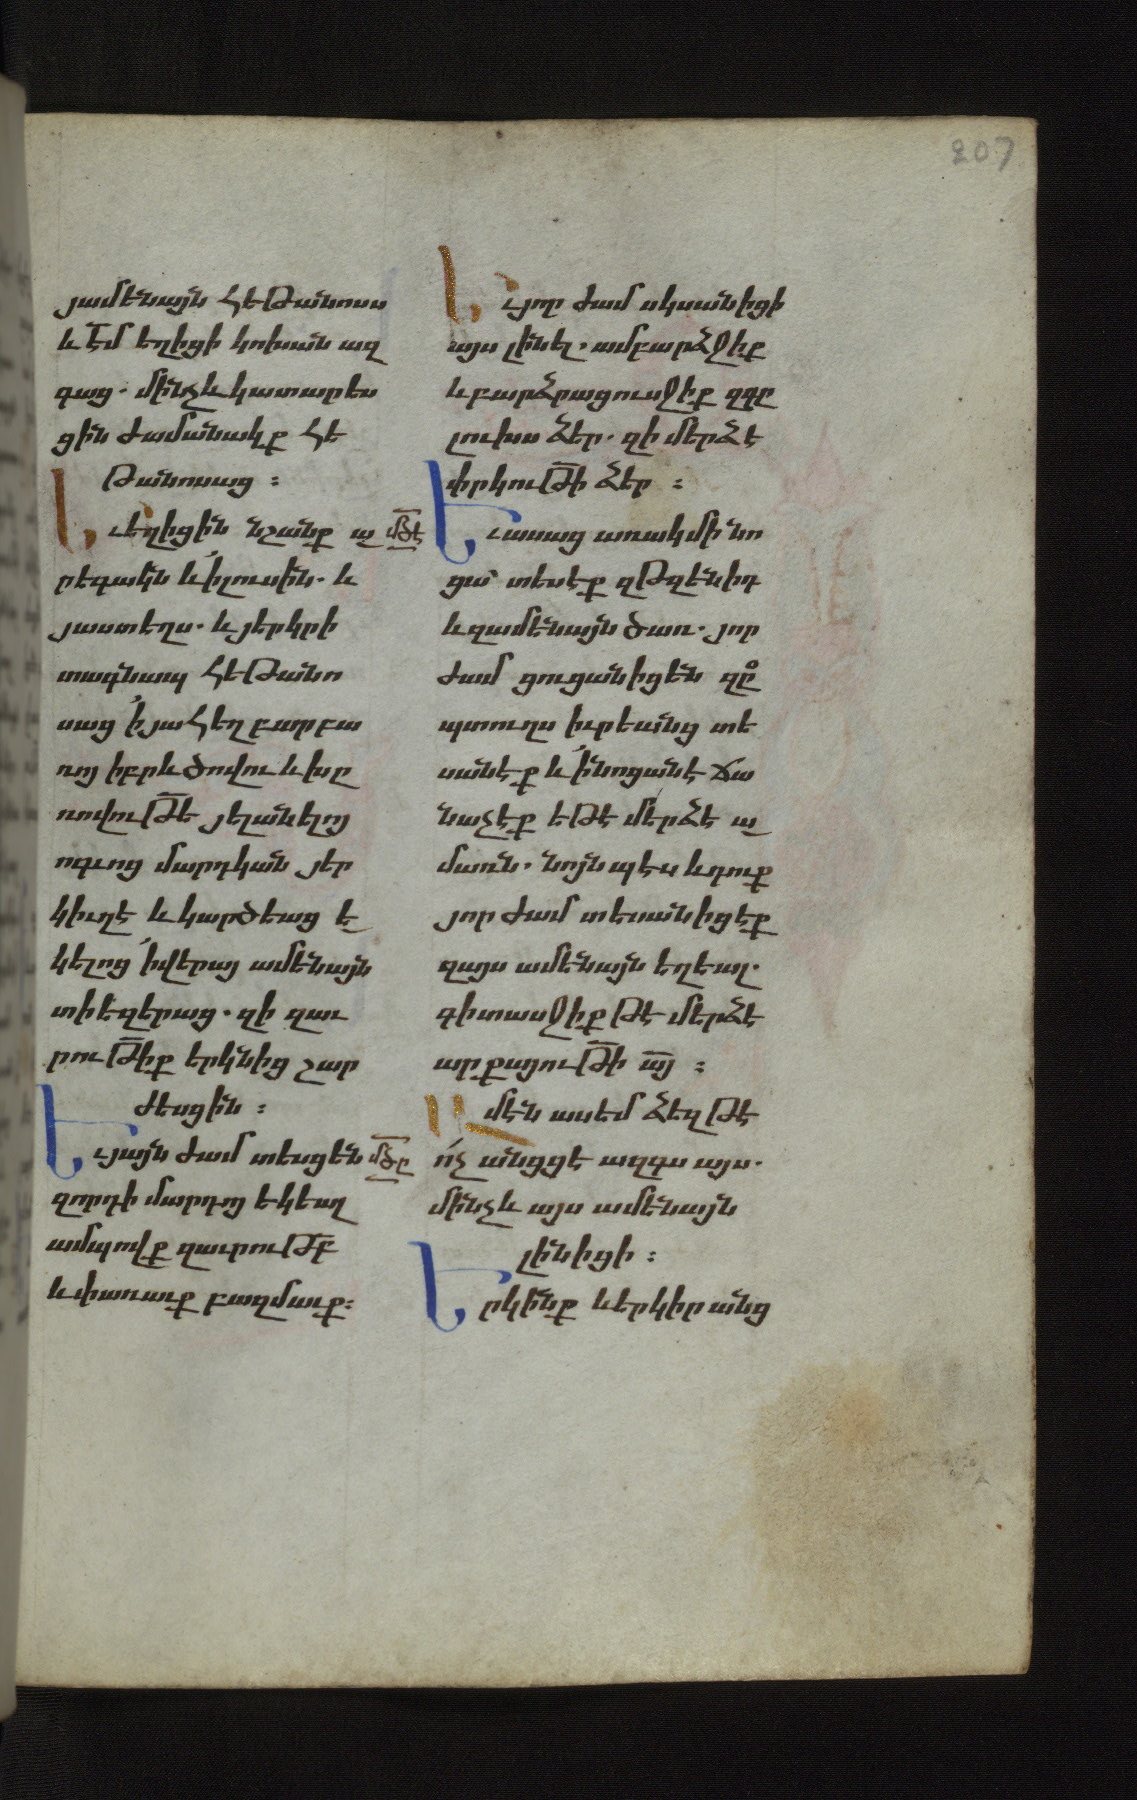 207
յամենայն հեթանոսս
և էմ եղիցի կոխան ազ
գաց. մինչև կատարես
ցին ժամանակք հե
թանոսաց :
Եւ եղիցին նշանք ա մծէ
րեգակն և իլուսին. և
յաստեղս. և յերկրի
տագնապ հեթանո
սաց իյահեղ բարբա
ռոյ իբրև ծովու և խը
ռովութե յելանելոյ
ոգւոց մարդկան յեր
կիւղէ և կարծեաց ե
կելոց իվերայ ամենայն
տիեզերաց. զի զաւ
րութիք երկնից շար
ժեսցին :
Եւ յայն ժամ տեսցեն մծը
զորդի մարդոյ եկեալ
ամպովք զաւրութբ
և փառաւք բազմաւք:
Եւ յոր ժամ սկսանիցի
այս լինել. ամբարձջիք
և բարձրացուսջիք զգը
լուխս ձեր. զի մերձէ
փրկութի ձեր :
Եւ ասաց առակ մի նո
ցա՝ տեսէք զթզենիդ
և զամենայն ծառ. յոր
ժամ ցուցանիցեն զը
պտուղս իւրեանց տե
սանէք և ինոցանէ ճա
նաչէք եթէ մերձէ ա
մառն. նոյնպէս և դուք
յոր ժամ տեսանիցէք
զայս ամենայն եղեալ.
գիտասջիք թէ մերձէ
արքայութի այ :
Ամէն ասեմ ձեզ թէ
ոչ անցցէ ազգս այս.
մինչև այս ամենայն
լինիցի :
Երկինք և երկիր անց